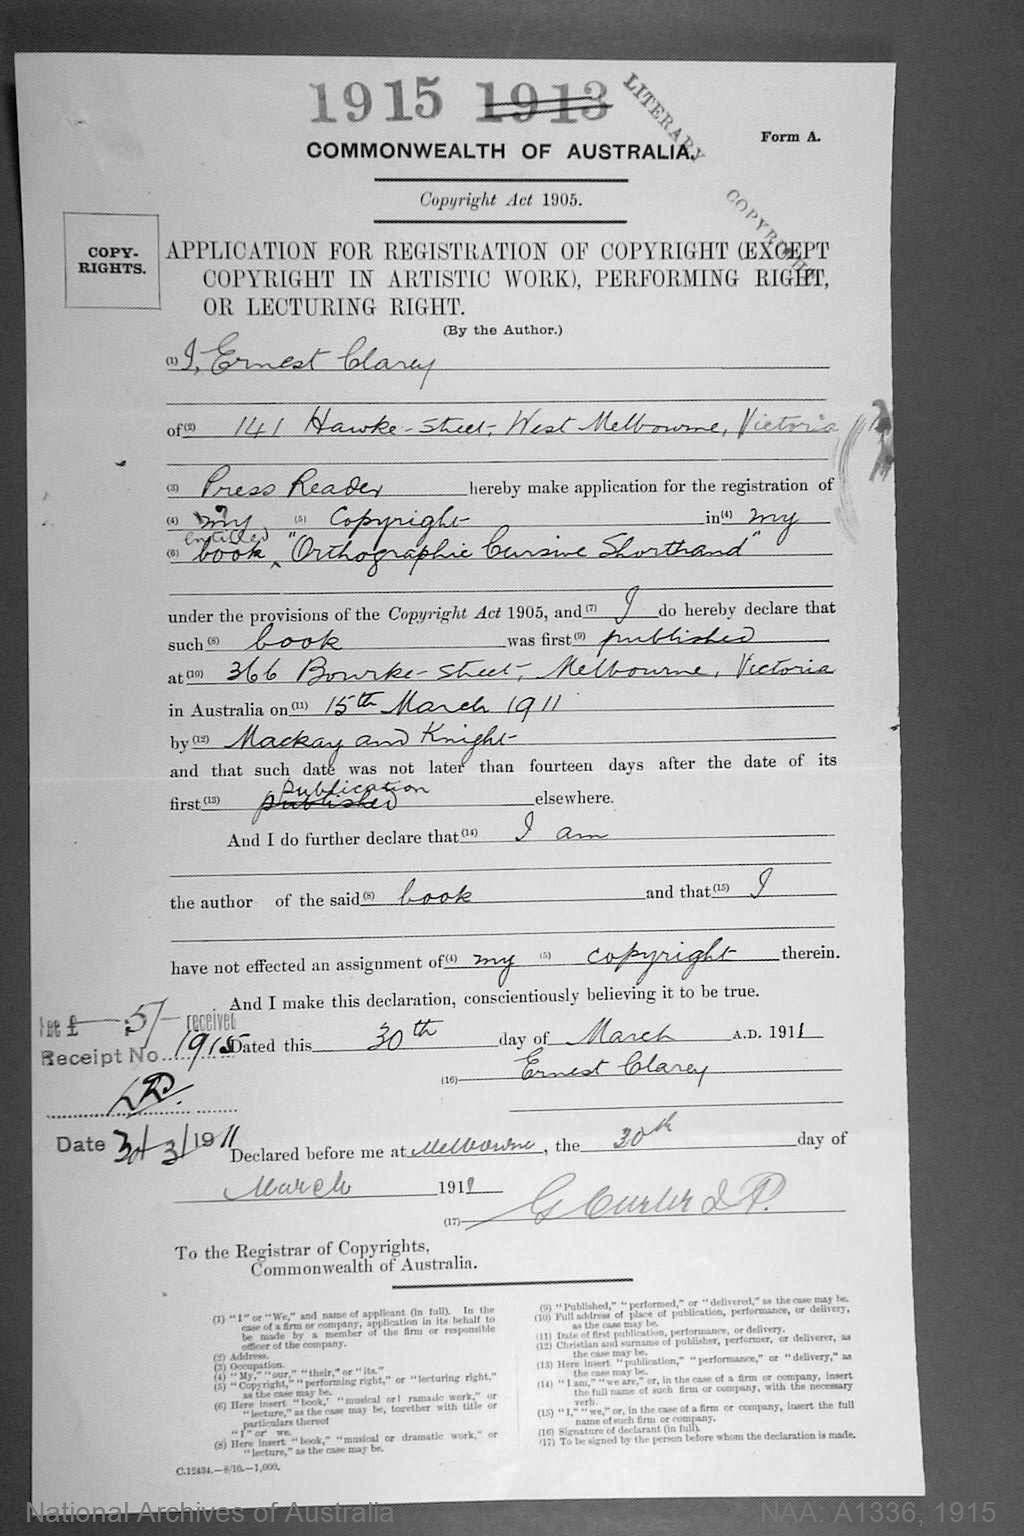 1915 1913
LITERARY
COPYRIGHT
Form A.
COMMONWEALTH OF AUSTRALIA.
Copyright Act 1905.
COPY-
RIGHTS.
APPLICATION FOR REGISTRATION OF COPYRIGHT (EXCEPT
COPYRIGHT IN ARTISTIC WORK), PERFORMING RIGHT,
OR LECTURING RIGHT.
(By the Author.)
(1) I, Ernest Clarey
of (2) 141 Hawke-Street, West Melbourne, Victoria
(3) Press Reader hereby make application for the registration of
(4) my (5) Copyright in (4) my
entitled
(6) book "Orthographic Cursive Shorthand"
under the provisions of the Copyright Act 1905, and (7) I do hereby declare that
such (8) book was first (9) published
at (10) 366 Bourke-Street, Melbourne, Victoria
in Australia on (11) 15th March 1911
by (12) Mackay and Knight
and that such date was not later than fourteen days after the date of its
publication
first (13) published elsewhere.
And I do further declare that (14) I am
the author of the said (8) book and that (15) I
have not effected an assignment of (4) my (5) copyright therein.
And I make this declaration, conscientiously believing it to be true.
Fee £ 5/- received
Receipt No. 1915
Dated this 30th day of March A.D. 1911
(16) Ernest Clarey
Date 30/3/1911
Declared before me at Melbourne, the 30th day of
March 1911
(17) G Curler J.P.
To the Registrar of Copyrights,
Commonwealth of Australia.
(1) "I" or "We," and name of applicant (in full). In the
case of a firm or company, application in its behalf to
be made by a member of the firm or responsible
officer of the company.
(2) Address.
(3) Occupation.
(4) "My," "our," "their," or "its."
(5) "Copyright," "performing right," or "lecturing right,"
as the case may be.
(6) Here insert "book," "musical or ramatic work," or
"lecture," as the case may be, together with title or
particulars thereof
"I" or we.
(8) Here insert "book," "musical or dramatic work," or
"lecture," as the case may be.
C.12434.—8/10.—1,000.
(9) "Published," "performed," or "delivered," as the case may be.
(10) Full address of place of publication, performance, or delivery,
as the case may be.
(11) Date of first publication, performance, or delivery.
(12) Christian and surname of publisher, performer, or deliverer, as
the case may be.
(13) Here insert "publication," "performance," or "delivery," as
the case may be.
(14) "I am," "we are," or, in the case of a firm or company, insert
the full name of such firm or company, with the necessary
verb.
(15) "I," "we," or, in the case of a firm or company, insert the full
name of such firm or company.
(16) Signature of declarant (in full).
(17) To be signed by the person before whom the declaration is made.
National Archives of Australia
NAA: A1336, 1915